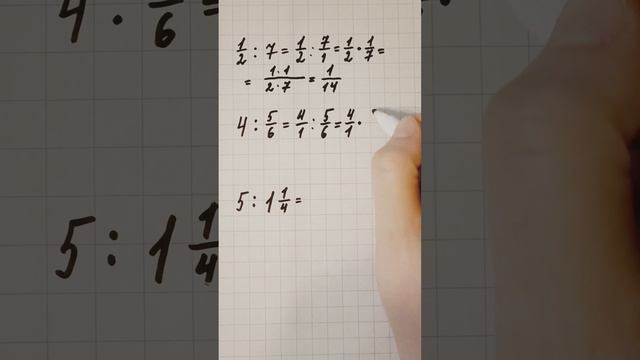 4 · 6
1/2 : 7 = 1/2 : 7/1 = 1/2 · 1/7 =
= 1·1/2·7 = 1/14
4 : 5/6 = 4/1 : 5/6 = 4/1 ·
5 : 1 1/4 =
5 : 1 1/4